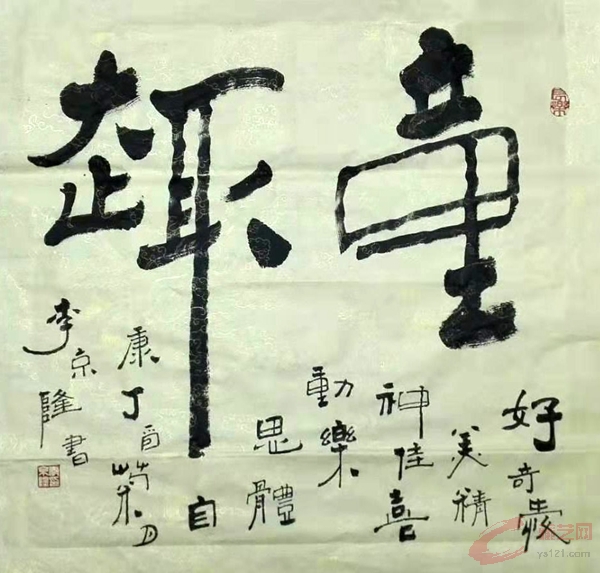 童趣
好奇愛
美精
神佳喜
動樂
思體
自
康丁酉榮月
李京隆書
艺网
ya121.com